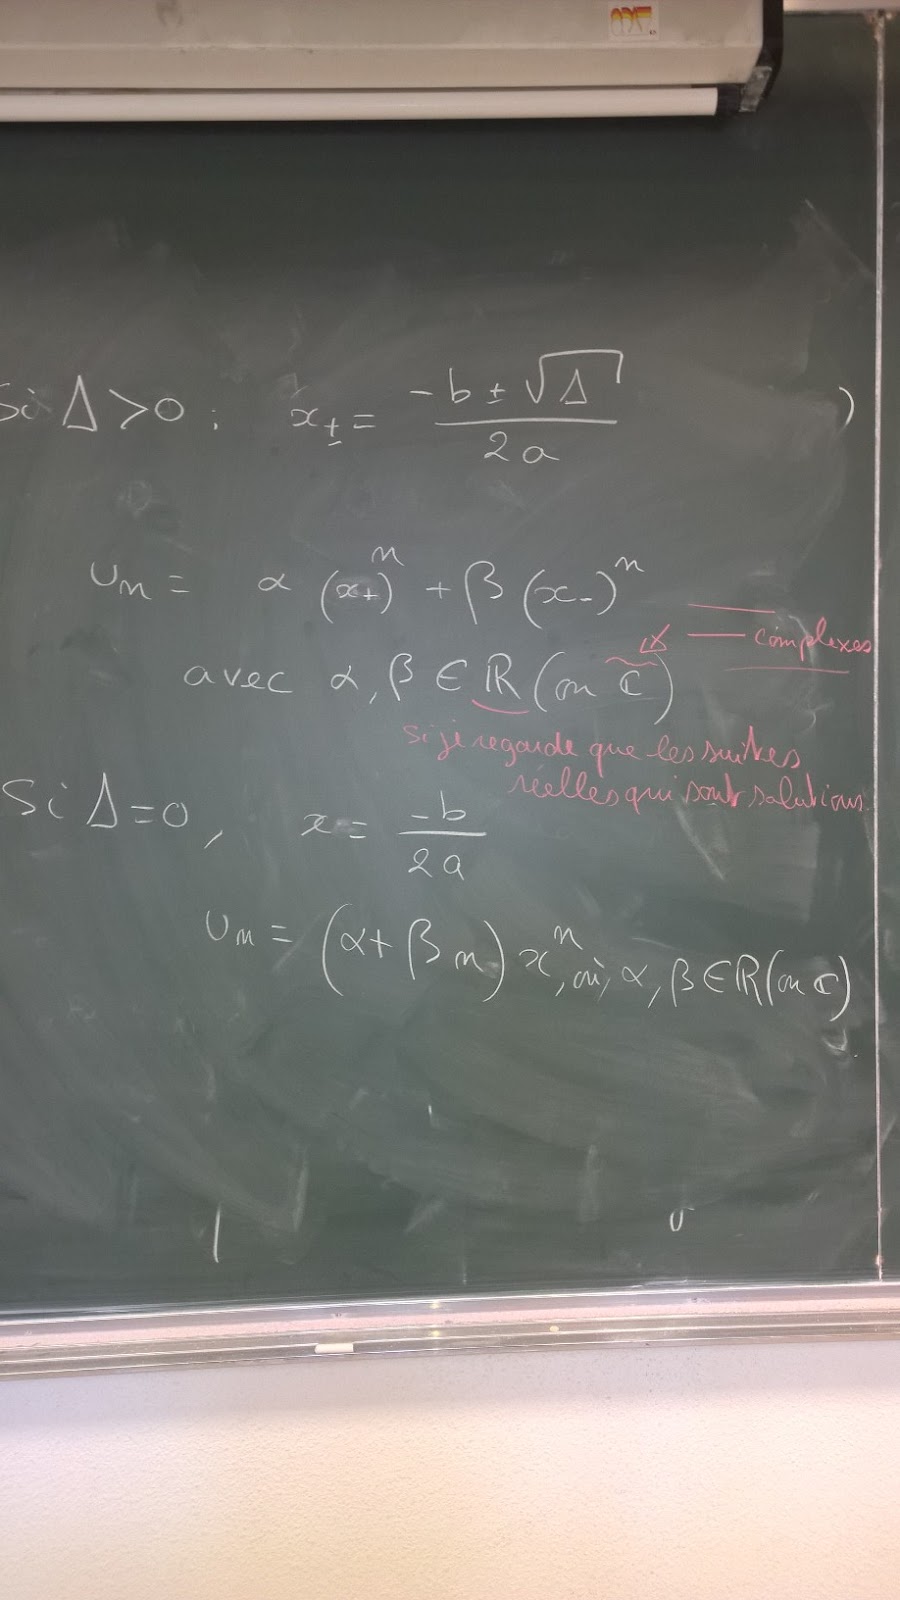 Si Δ>0 : x± = (-b ± √Δ) / 2a )
Un = α (x+)^n + β (x-)^n
complexes
avec α, β ∈ ℝ (ou ℂ)
si je regarde que les suites
réelles qui sont solutions.
Si Δ=0, x = -b / 2a
Un = (α + βn) x^n, où, α, β ∈ ℝ (ou ℂ)